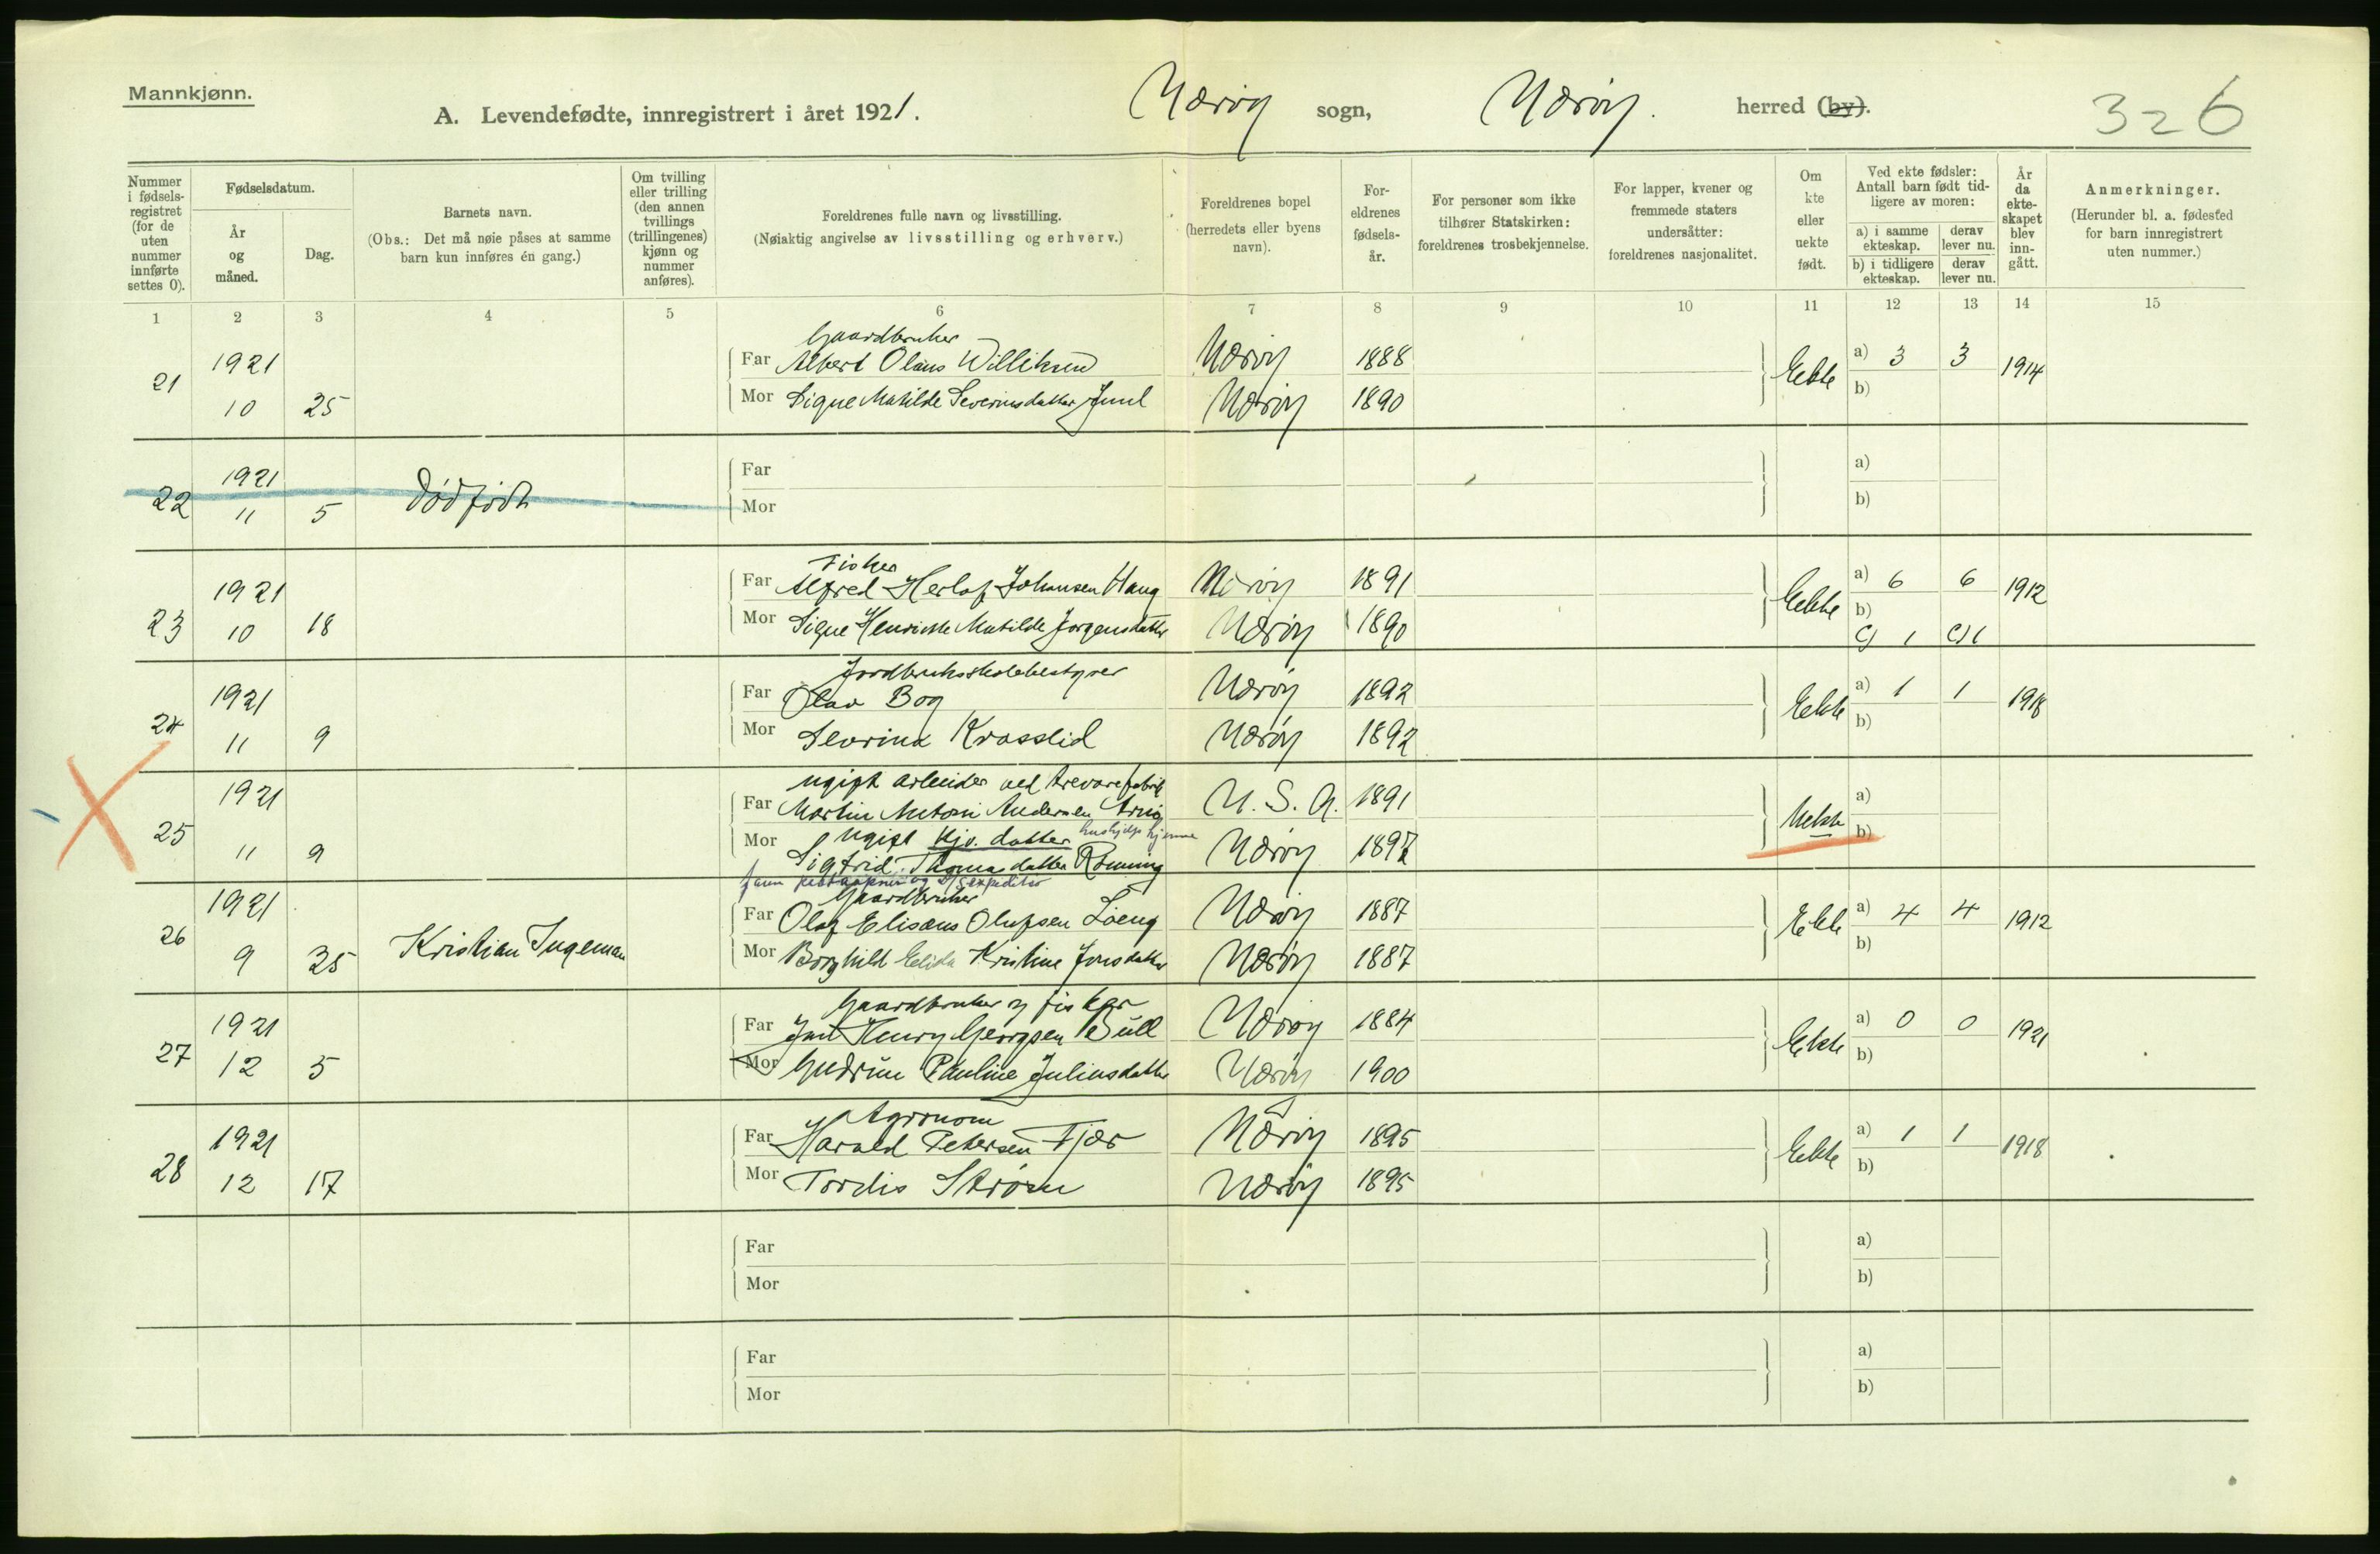 Mannkjønn.
A. Levendefødte, innregistrert i året 1921. Nærøy sogn, Nærøy. herred (by).
326
Nummer i fødsels-registret (for de uten nummer innførte settes 0).
Fødselsdatum.
År og måned.
Dag.
Barnets navn.
(Obs.: Det må nøie påses at samme barn kun innføres én gang.)
Om tvilling eller trilling (den annen tvillings (trillingenes) kjønn og nummer anføres).
Foreldrenes fulle navn og livsstilling.
(Nøiaktig angivelse av livsstilling og erhverv.)
Foreldrenes bopel (herredets eller byens navn).
For-eldrenes fødsels-år.
For personer som ikke tilhører Statskirken: foreldrenes trosbekjennelse.
For lapper, kvener og fremmede staters undersåtter: foreldrenes nasjonalitet.
Om kte eller uekte født.
Ved ekte fødsler: Antall barn født tid-ligere av moren:
a) i samme ekteskap.
derav lever nu.
b) i tidligere ekteskap.
derav lever nu.
År da ekte-skapet blev inn-gått.
Anmerkninger.
(Herunder bl. a. fødested for barn innregistrert uten nummer.)
1 2 3 4 5 6 7 8 9 10 11 12 13 14 15
Gaardbruker
21 1921 10 25 Far Albert Olaus Williksen Nærøy 1888 Ekte a) 3 3 1914
Mor Signe Matilde Severinsdatter Juul Nærøy 1890 b)
22 1921 11 5 Dødfødt Far a)
Mor b)
Fisker
23 1921 10 18 Far Alfred Herlof Johansen Haug Nærøy 1891 Ekte a) 6 6 1912
Mor Signe Henrikke Matilde Jørgensdatter Nærøy 1890 b)
c) 1 c) 1
Jordbruksskolebestyrer
24 1921 11 9 Far Olav Bog Nærøy 1892 Ekte a) 1 1 1918
Mor Severina Krosslid Nærøy 1892 b)
ugift arbeider ved trevarefabrik
25 1921 11 9 Far Martin Antoni Andersen U. S. A. 1891 Uekte a)
Mor ugift Kjv. datter hushjelp hjemme Nærøy 1897 b)
Sigfrid Thomasdatter Rønning
Gaardbruker
26 1921 9 25 Kristian Ingeman Far Olaf Elisæus Olufsen Løeng Nærøy 1887 Ekte a) 4 4 1912
Mor Borghild Elida Kristine Jonsdatter Nærøy 1887 b)
Gaardbruker og fisker
27 1921 12 5 Far Juul Henry Georgsen Büll Nærøy 1884 Ekte a) 0 0 1921
Mor Gudrun Pauline Juliusdatter Nærøy 1900 b)
Agronom
28 1921 12 17 Far Harald Petersen Fjær Nærøy 1895 Ekte a) 1 1 1918
Mor Tordis Strøm Nærøy 1895 b)
Far a)
Mor b)
Far a)
Mor b)